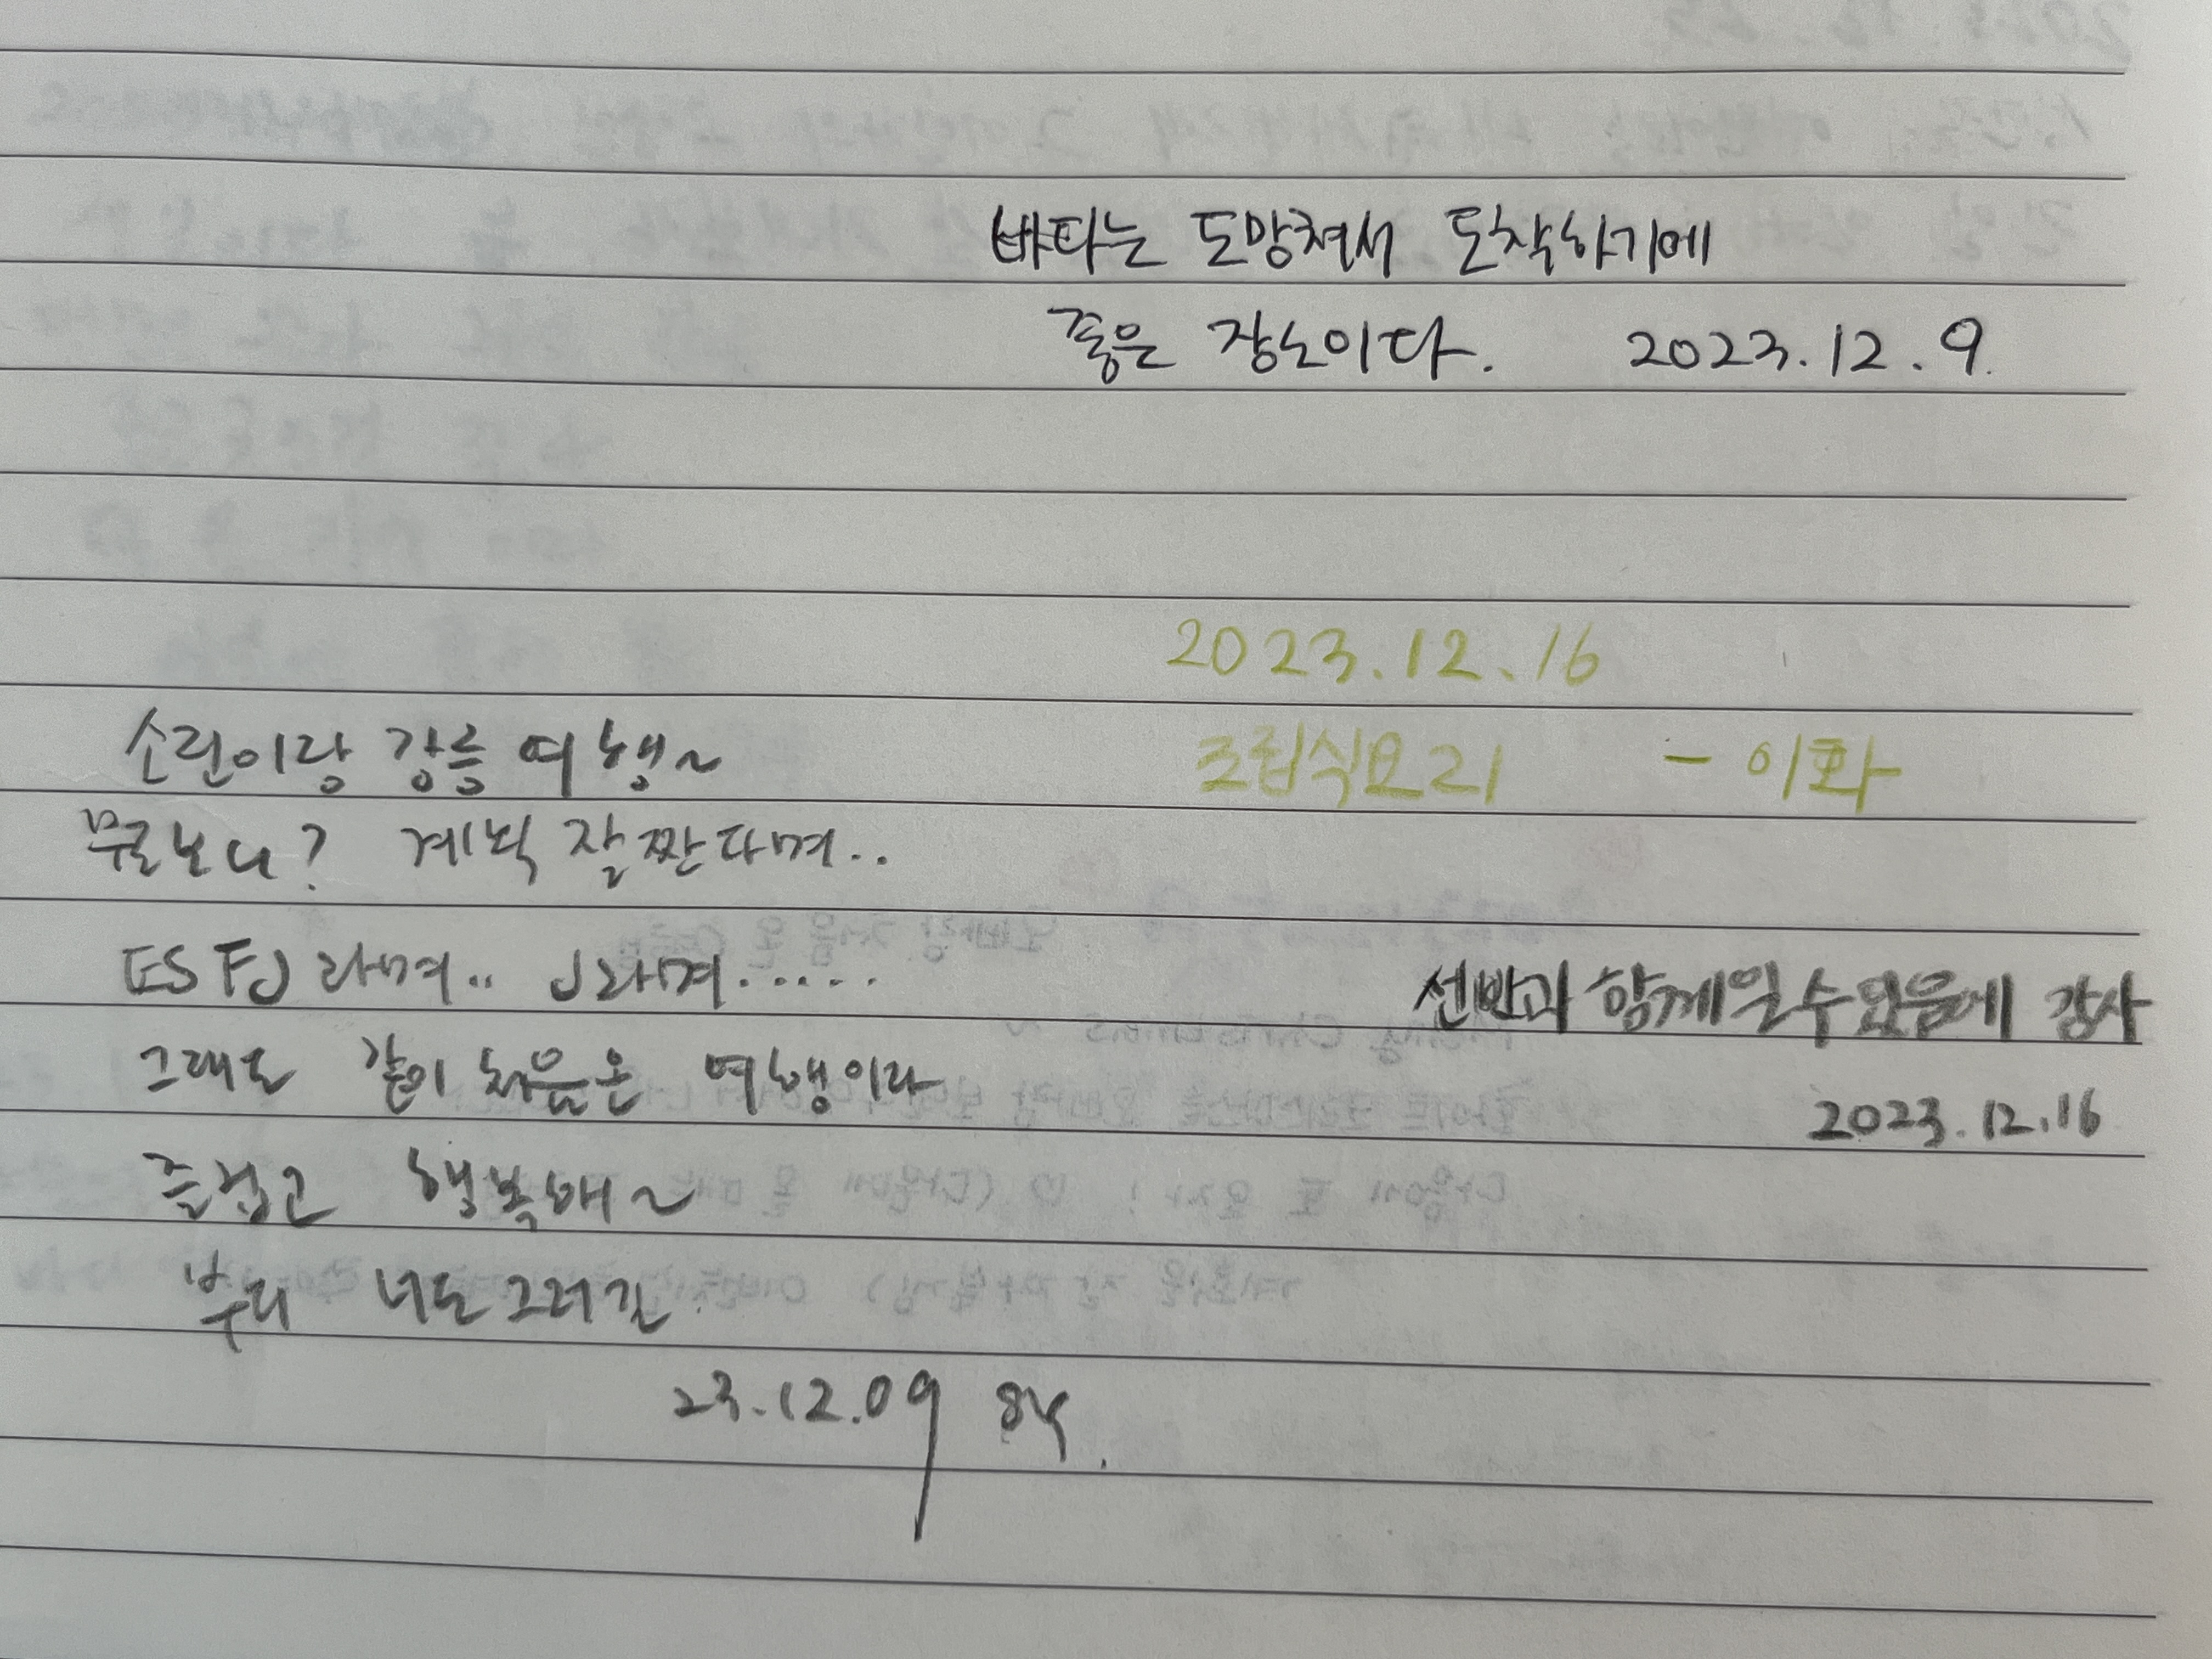 바다는 도망쳐서 도착하기에
좋은 장소이다. 2023.12.9.
2023.12.16
조립식요리 - 이화
소린이랑 강릉 여행~
뭘보니? 계획 잘짠다며..
ESFJ라며.. J라며.....
그래도 같이 처음온 여행이라
즐겁고 행복해~
부디 너도 그러길.
23.12.09
선반과 함께일수있음에 감사
2023.12.16